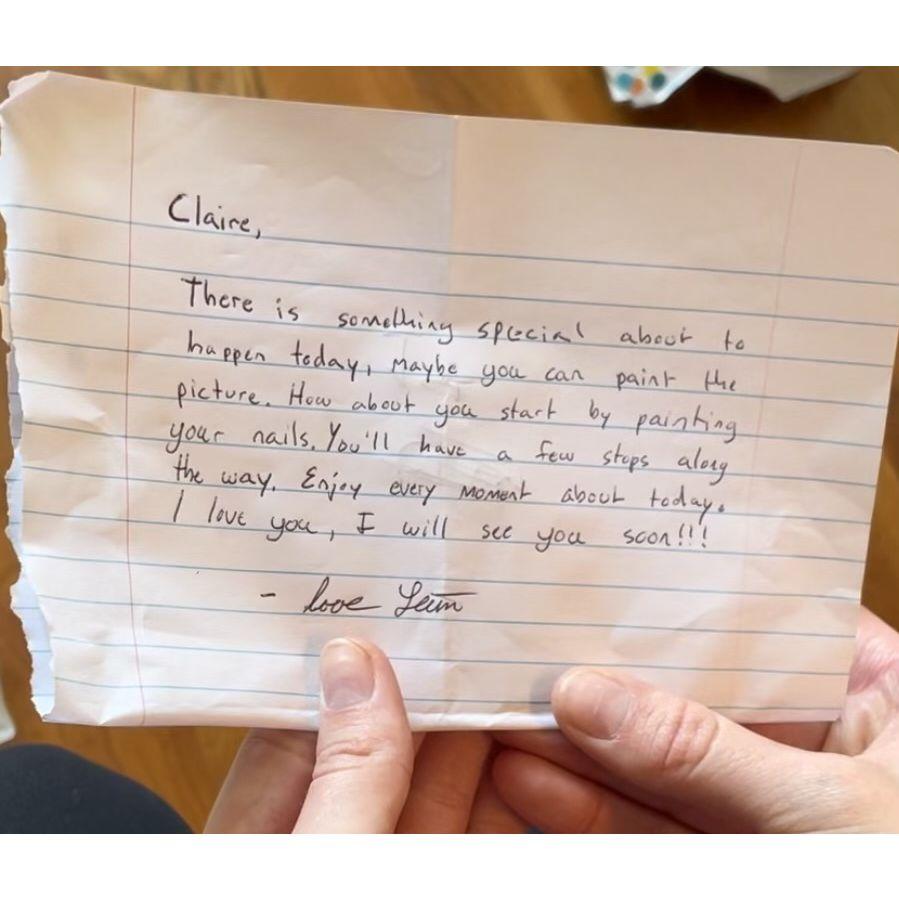 Claire,
There is something special about to
happen today, Maybe you can paint the
picture. How about you start by painting
your nails. You'll have a few stops along
the way. Enjoy every moment about today.
I love you, I will see you soon!!!
- love